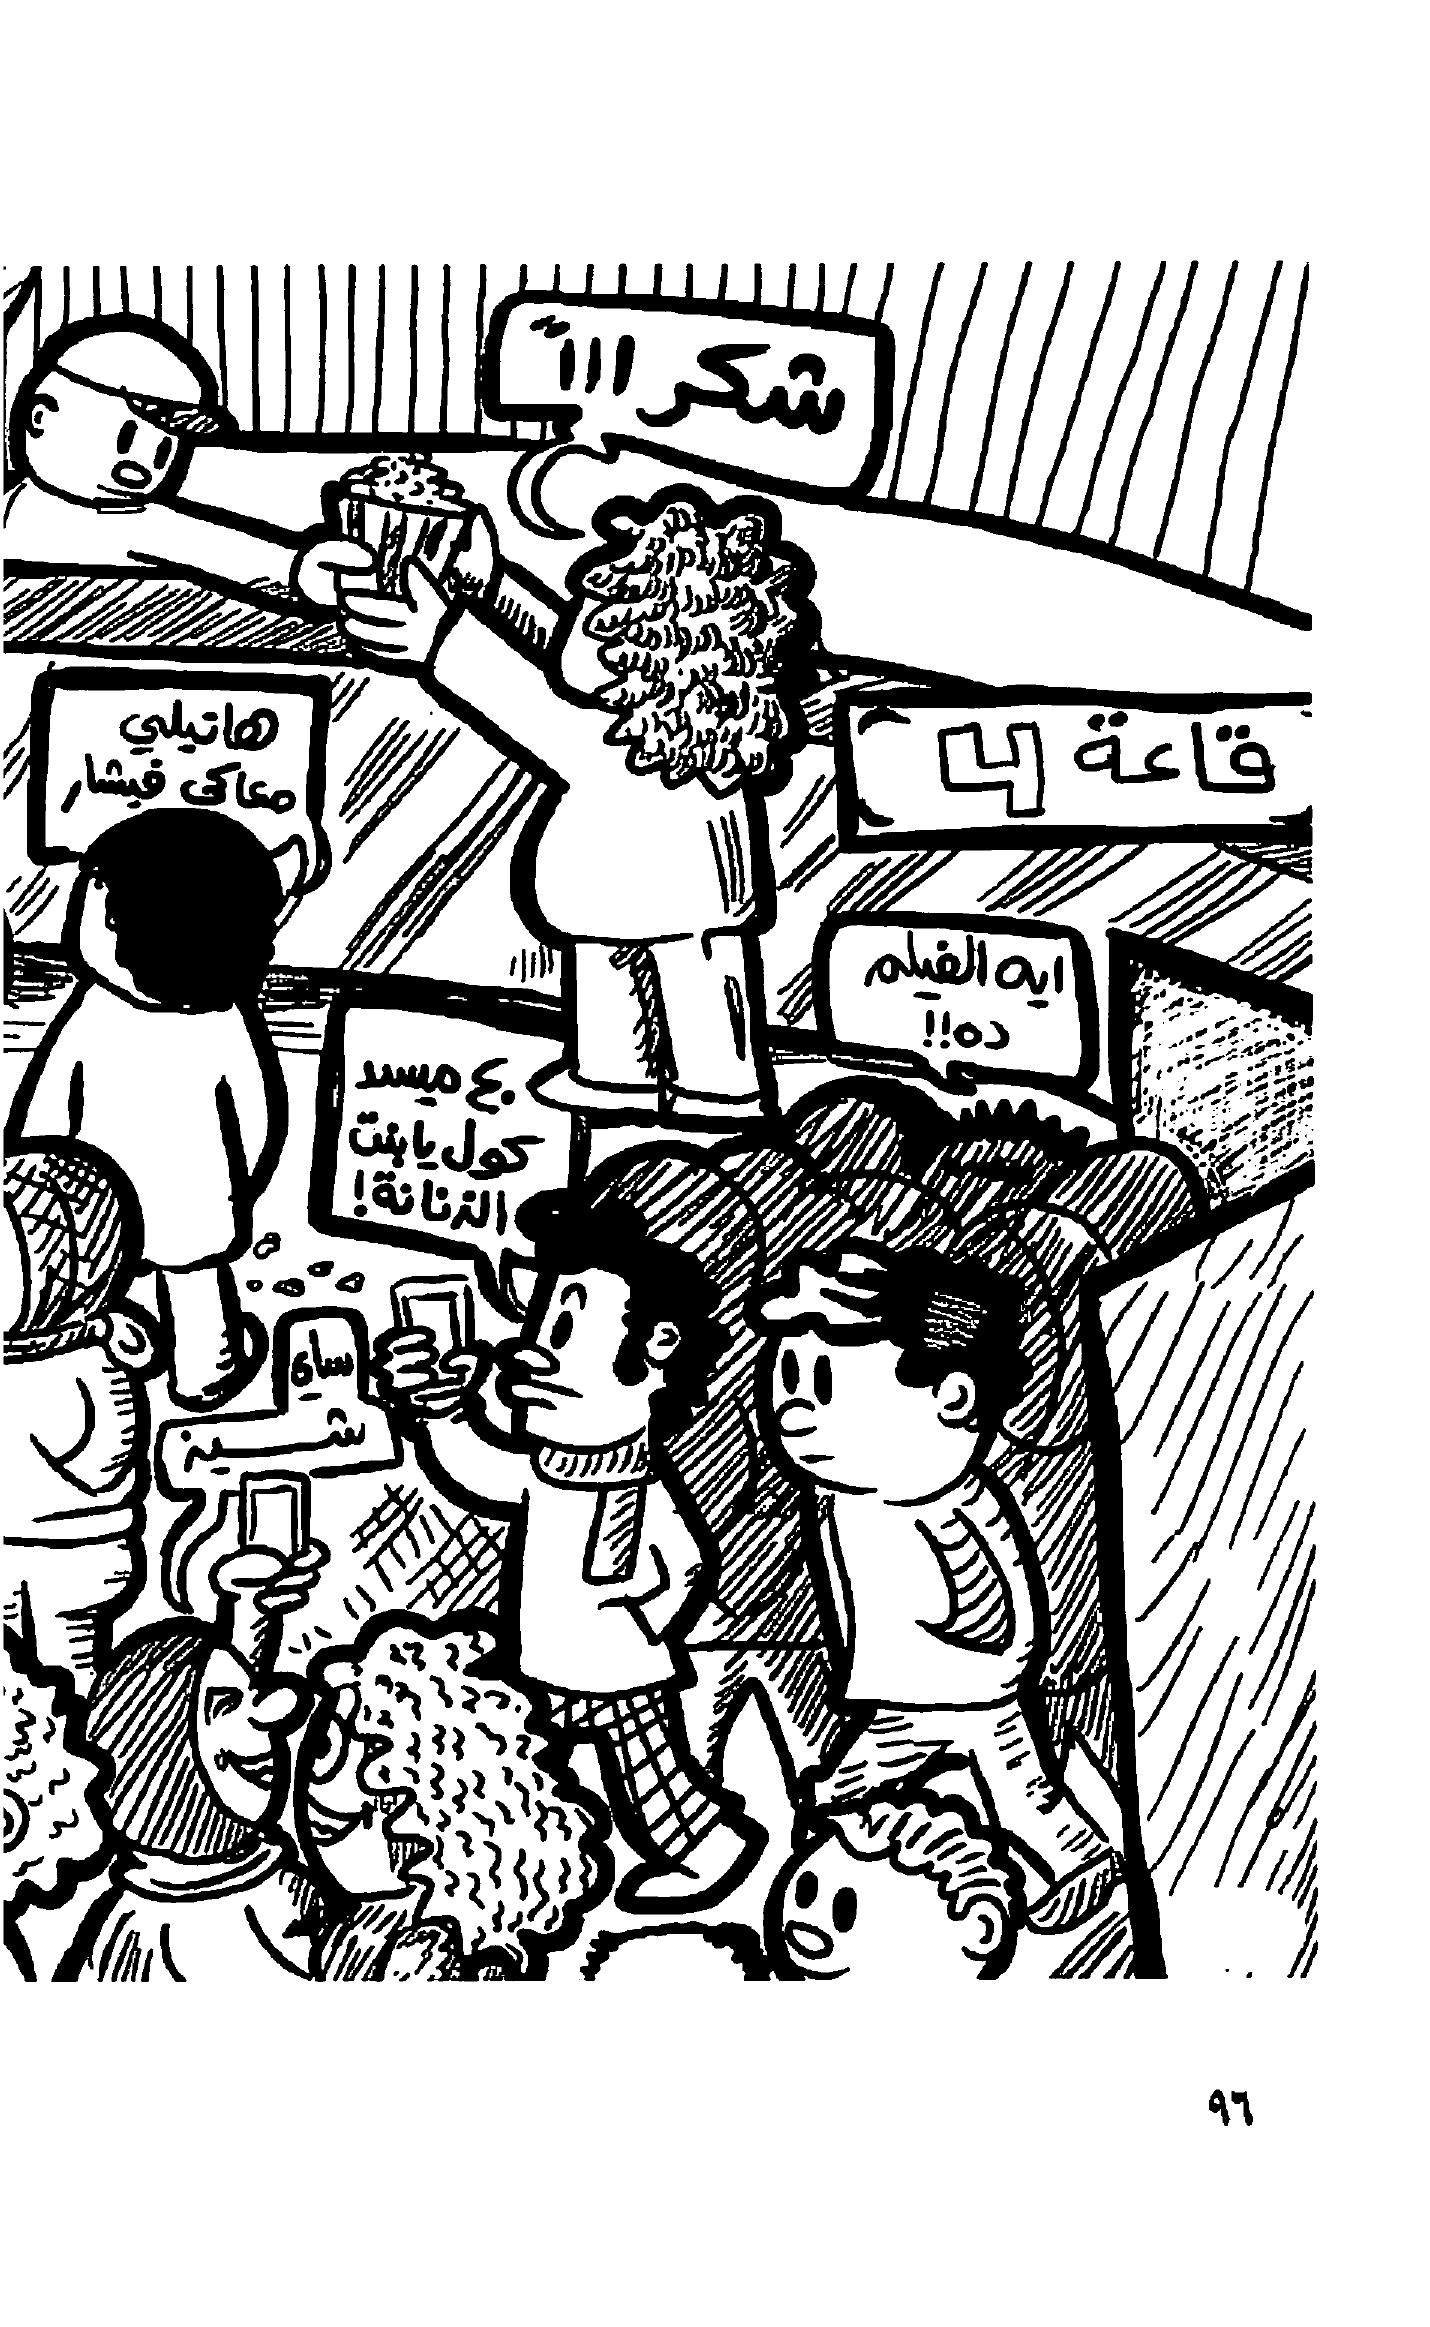 شكراااً
هاتيلي
معاكى فيشار
قاعة 4
ايه الفيلم
ده!!
٤٠ ميسد
كول يا بنت
الزنانة!
ساه
شـــيز
٩٦